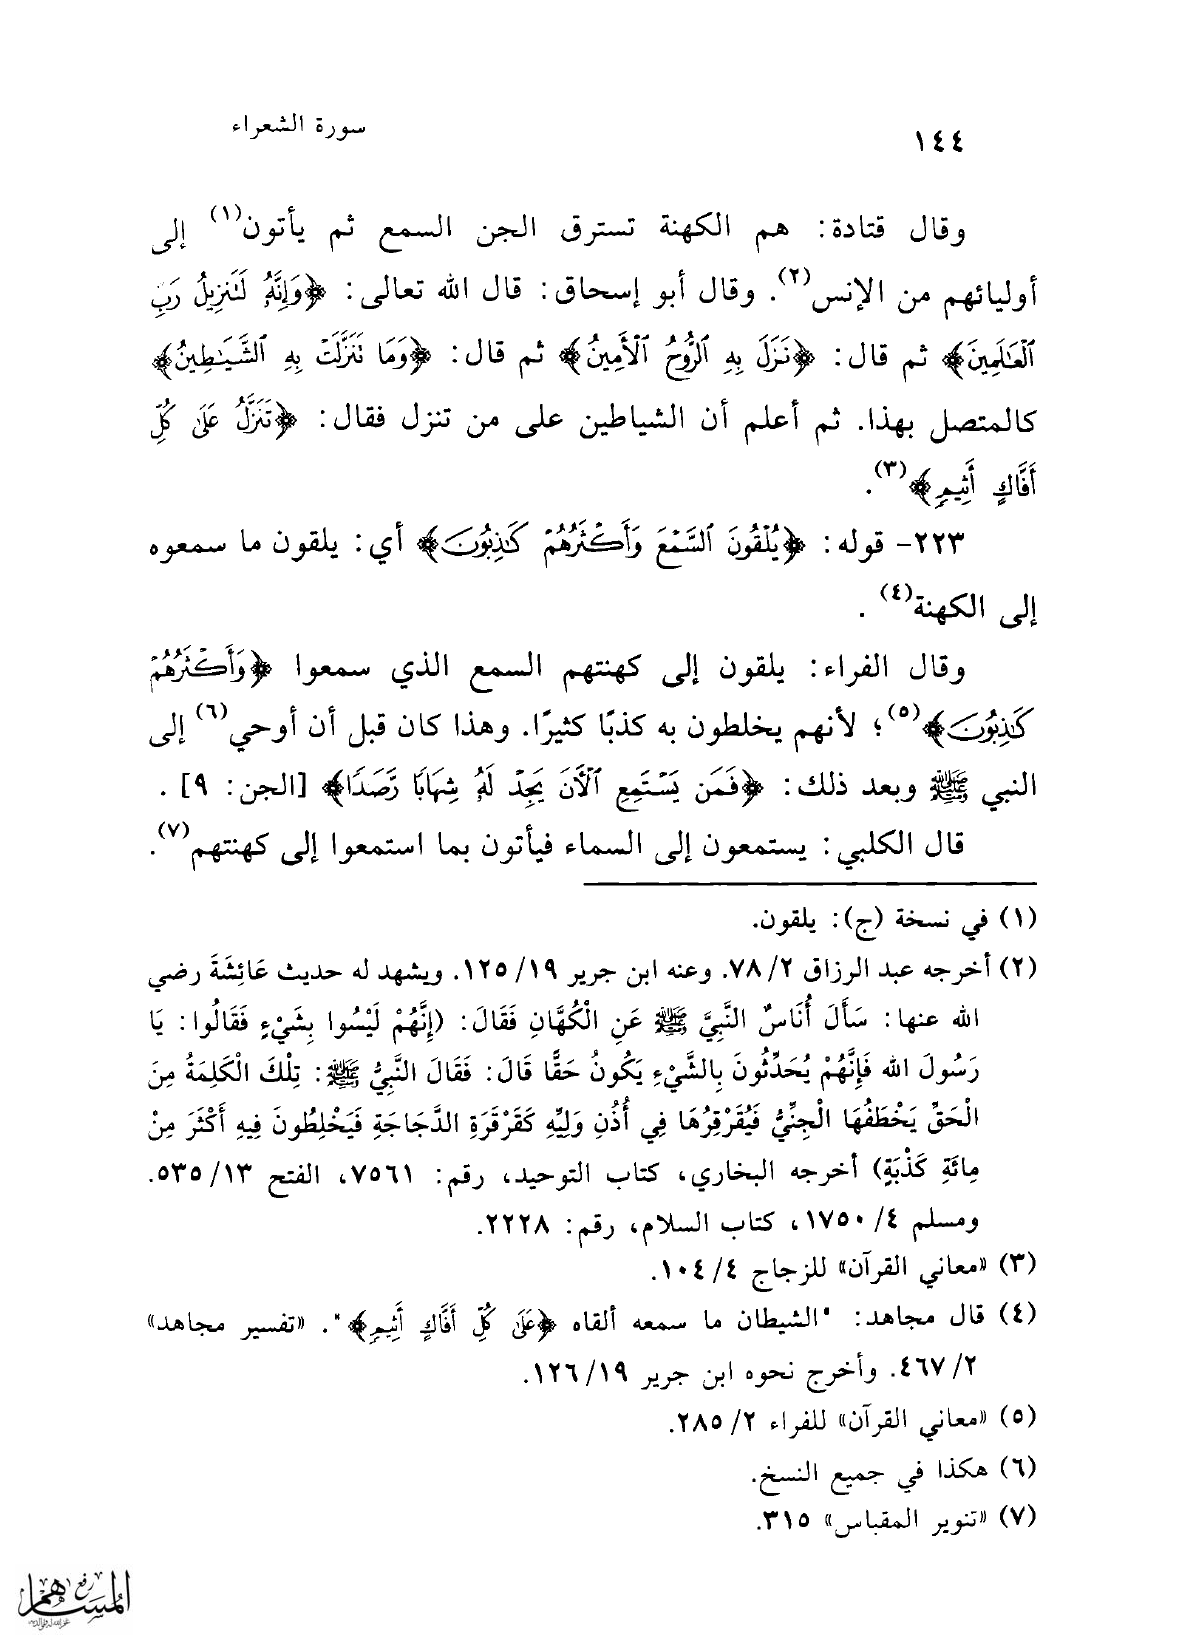 ١٤٤
سورة الشعراء
وقال قتادة: هم الكهنة تسترق الجن السمع ثم يأتون(١) إلى
أوليائهم من الإنس(٢). وقال أبو إسحاق: قال الله تعالى: ﴿وَإِنَّهُ لَتَنزِيلُ رَبِّ
ٱلْعَـٰلَمِينَ﴾ ثم قال: ﴿نَزَلَ بِهِ ٱلرُّوحُ ٱلْأَمِينُ﴾ ثم قال: ﴿وَمَا تَنَزَّلَتْ بِهِ ٱلشَّيَـٰطِينُ﴾
كالمتصل بهذا. ثم أعلم أن الشياطين على من تنزل فقال: ﴿تَنَزَّلُ عَلَىٰ كُلِّ
أَفَّاكٍ أَثِيمٍ﴾(٣).
٢٢٣- قوله: ﴿يُلْقُونَ ٱلسَّمْعَ وَأَكْثَرُهُمْ كَـٰذِبُونَ﴾ أي: يلقون ما سمعوه
إلى الكهنة(٤) .
وقال الفراء: يلقون إلى كهنتهم السمع الذي سمعوا ﴿وَأَكْثَرُهُمْ
كَـٰذِبُونَ﴾(٥)؛ لأنهم يخلطون به كذبًا كثيرًا. وهذا كان قبل أن أوحي(٦) إلى
النبي ﷺ وبعد ذلك: ﴿فَمَن يَسْتَمِعِ ٱلْآنَ يَجِدْ لَهُ شِهَابًا رَّصَدًا﴾ [الجن: ٩] .
قال الكلبي: يستمعون إلى السماء فيأتون بما استمعوا إلى كهنتهم(٧).
(١) في نسخة (ج): يلقون.
(٢) أخرجه عبد الرزاق ٢/ ٧٨. وعنه ابن جرير ١٩/ ١٢٥. ويشهد له حديث عَائِشَةَ رضي
الله عنها: سَأَلَ أُنَاسٌ النَّبِيَّ ﷺ عَنِ الْكُهَّانِ فَقَالَ: (إِنَّهُمْ لَيْسُوا بِشَيْءٍ فَقَالُوا: يَا
رَسُولَ الله فَإِنَّهُمْ يُحَدِّثُونَ بِالشَّيْءِ يَكُونُ حَقًّا قَالَ: فَقَالَ النَّبِيُّ ﷺ: تِلْكَ الْكَلِمَةُ مِنَ
الْحَقِّ يَخْطَفُهَا الْجِنِّيُّ فَيُقَرْقِرُهَا فِي أُذُنِ وَلِيِّهِ كَقَرْقَرَةِ الدَّجَاجَةِ فَيَخْلِطُونَ فِيهِ أَكْثَرَ مِنْ
مِائَةِ كَذْبَةٍ) أخرجه البخاري، كتاب التوحيد، رقم: ٧٥٦١، الفتح ١٣/ ٥٣٥.
ومسلم ٤/ ١٧٥٠، كتاب السلام، رقم: ٢٢٢٨.
(٣) «معاني القرآن» للزجاج ٤/ ١٠٤.
(٤) قال مجاهد: "الشيطان ما سمعه ألقاه ﴿عَلَىٰ كُلِّ أَفَّاكٍ أَثِيمٍ﴾". «تفسير مجاهد»
٢/ ٤٦٧. وأخرج نحوه ابن جرير ١٩/ ١٢٦.
(٥) «معاني القرآن» للفراء ٢/ ٢٨٥.
(٦) هكذا في جميع النسخ.
(٧) «تنوير المقباس» ٣١٥.